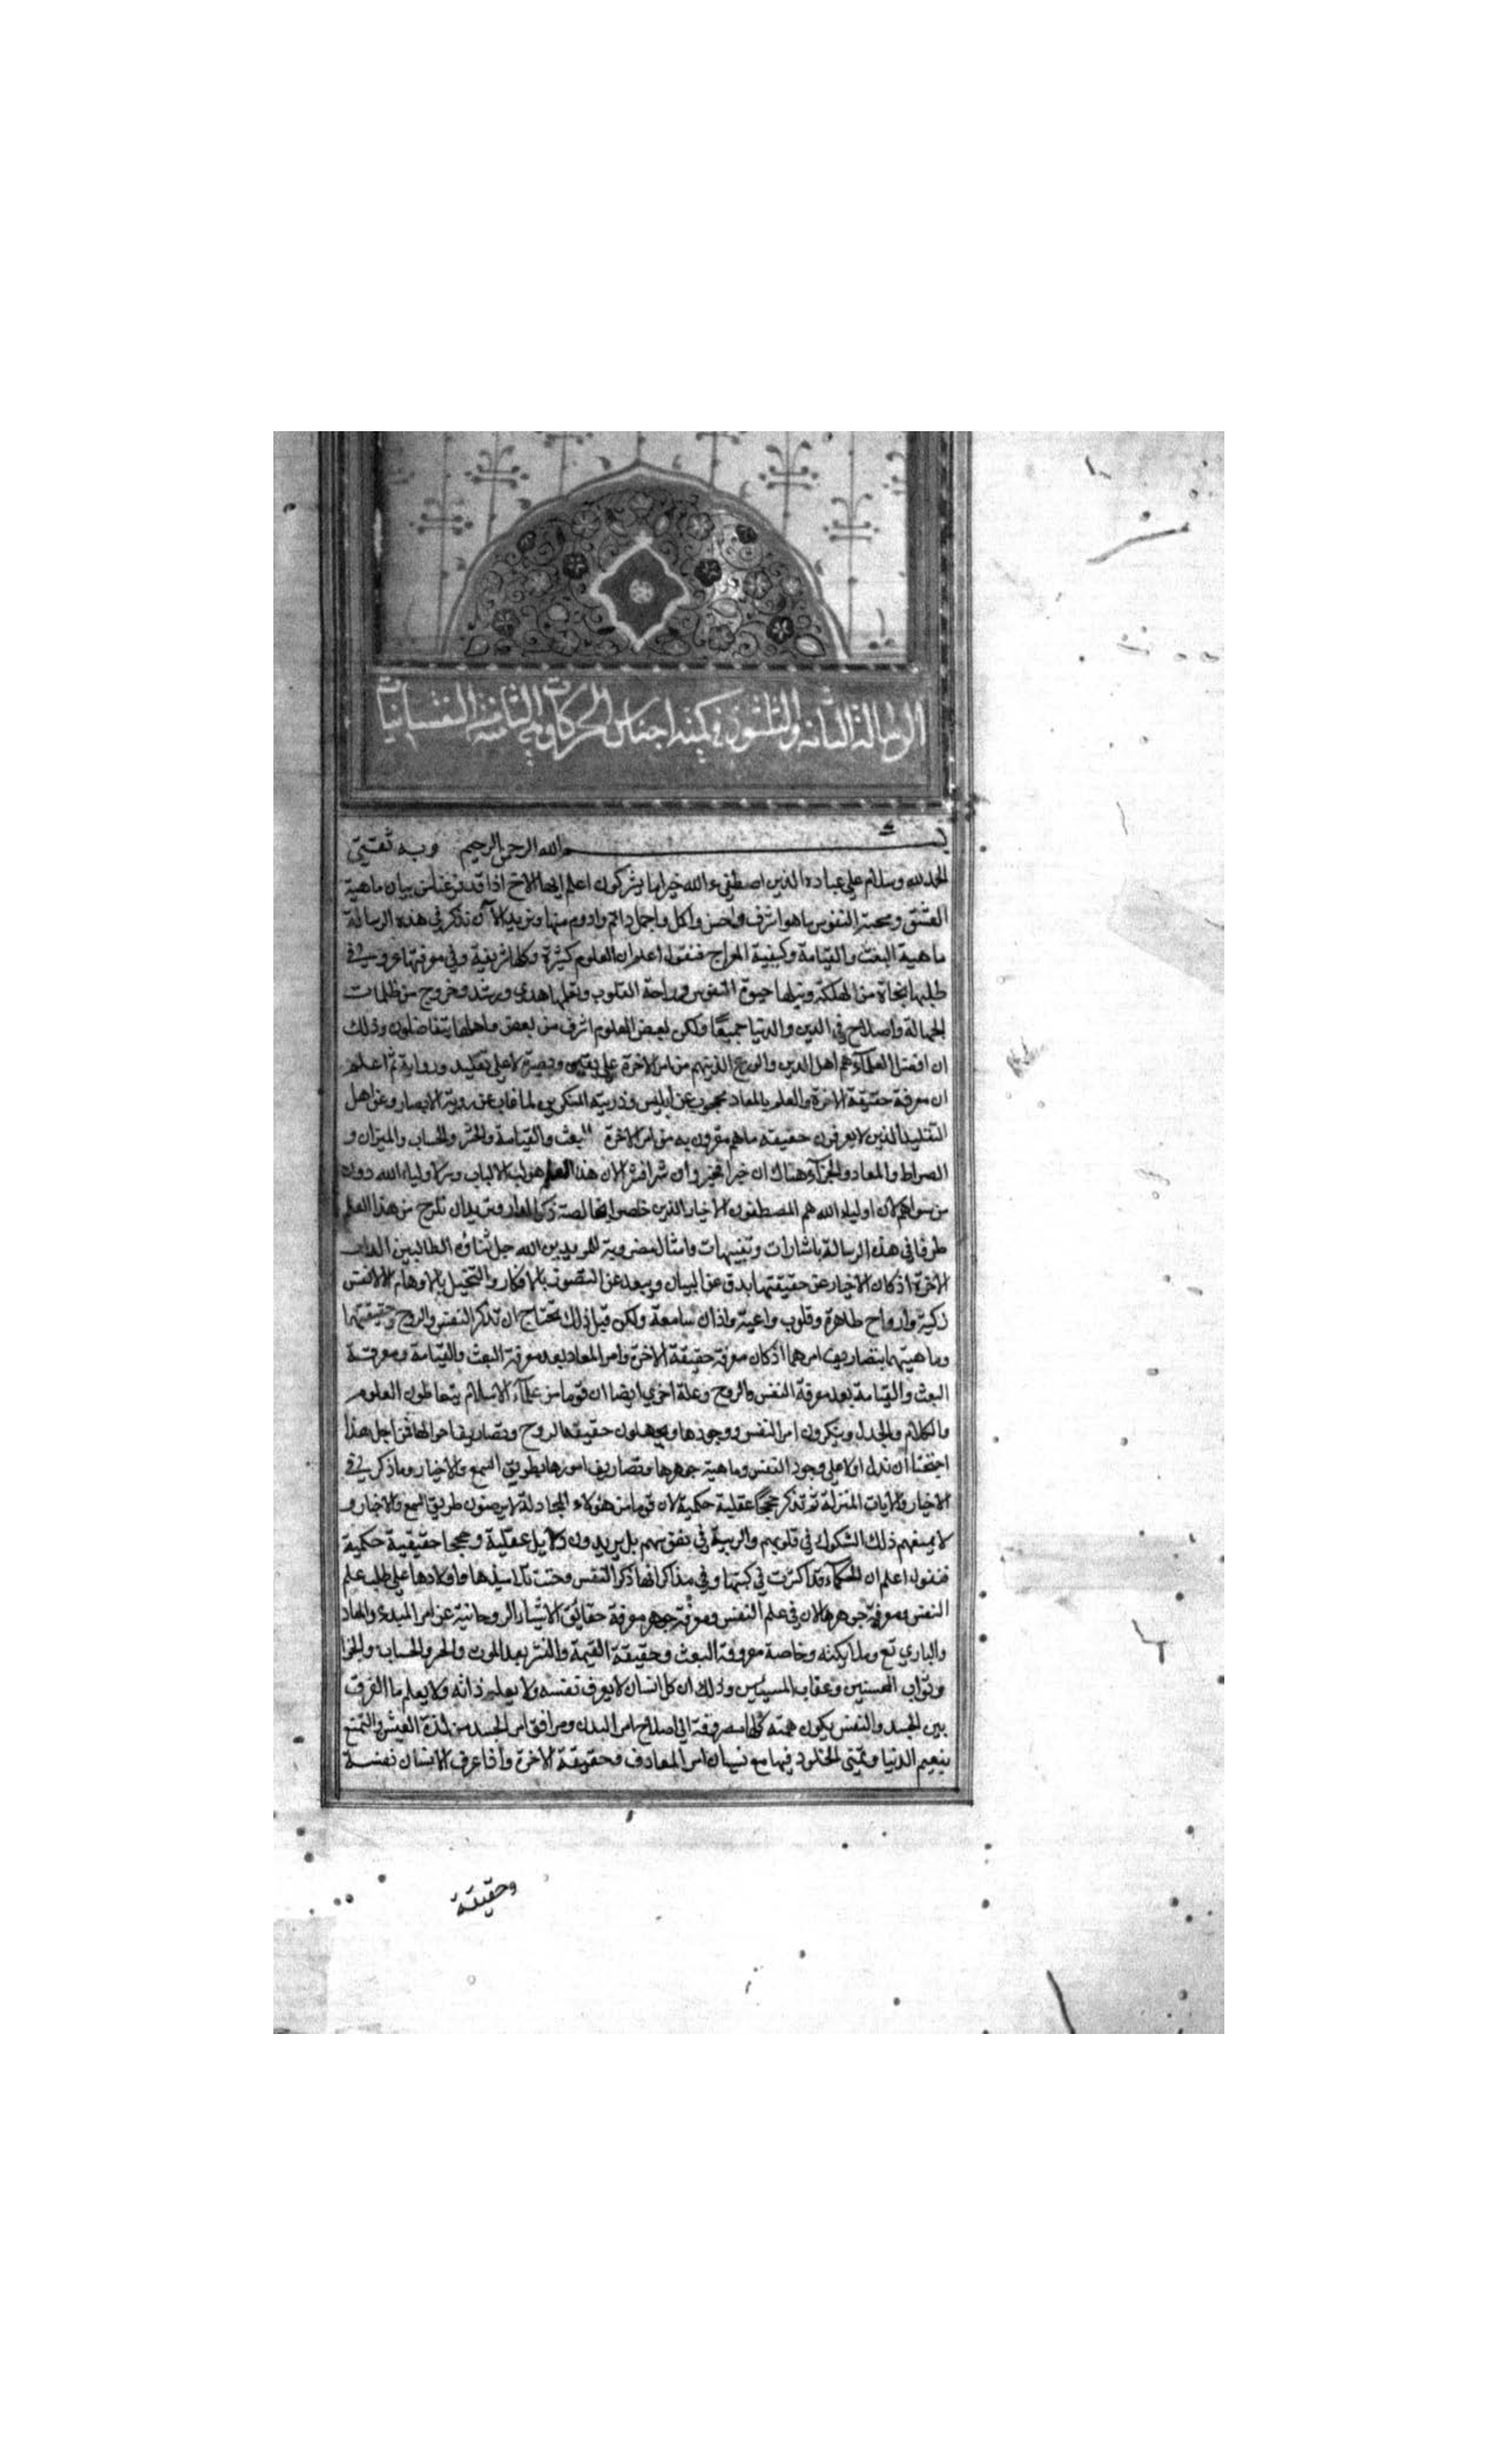 الرسالة الثانية والثلثون في كمية اجناس الحركات وهي الثامنة النفسانيات
بسم الله الرحمن الرحيم وبه ثقتي
الحمد لله وسلام على عباده الذين اصطفى ءالله خير اما يشركون اعلم ايها الاخ اذا قد فرغنا من بيان ماهية
العشق ومحبة النفوس ما هو اشرف واحسن واكمل واجمل وادوم منها ونريد الآن نذكر في هذه الرسالة
ماهية البعث والقيامة وكيفية المعراج فنقول اعلم ان العلوم كثيرة وكلها شريفة وفي معرفتها عز وشرف
طلبها نجاة من الهلكة ونيلها حيوة النفوس وراحة القلوب وتعلمها هدى ورشد وخروج من ظلمات
الجهالة واصلاح في الدين والدنيا جميعًا ولكن بعض العلوم اشرف من بعض واهلها يتفاضلون وذلك
ان افضل العلمآء هم اهل الدين والورع الذينهم من امر الاخرة على يقين وبصيرة لا على تقليد ورواية ثم اعلم
ان معرفة حقيقة الاخرة والعلم بالمعاد محجوب عن ابليس وذريته المنكرين لما غاب عن روية الابصار وعن اهل
التقليد الذين لا يعرفون حقيقة ما هم مقرون به من امر الاخرة البعث والقيامة والحشر والحساب والميزان و
الصراط والمعاد والجزآء هناك ان خيرا فخير وان شرا فشر لان هذا العلم هو لب الالباب وسر اولياء الله دون
من سواهم لان اولياء الله هم المصطفون الاخيار الذين خلصوا بخالصة ذكر الدار ونريد ان نلوح من هذا العلم
طرفا في هذه الرسالة باشارات وتنبيهات وامثال مضروبة للمريدين الله جل ثناؤه الطالبين الدار
الاخرة اذ كان الاخبار عن حقيقتها يدق عن البيان ويبعد عن التصور بالافكار والتخيل بالاوهام الا لانفس
زكية وارواح طاهرة وقلوب واعية واذان سامعة ولكن قبل ذلك نحتاج ان نذكر النفس والروح وحقيقتها
وماهيتهما بتصاريف امرهما اذ كان معرفة حقيقة الاخرة وامر المعاد بعد معرفة البعث والقيامة ومعرفة
البعث والقيامة بعد معرفة النفس والروح وعلة اخرى ايضا ان قوما من علمآء الاسلام يتعاطون العلوم
والكلام والجدل وينكرون امر النفس ووجودها ويجهلون حقيقة الروح وتصاريف احوالها فمن اجل هذا
احتجنا ان ندل اولا على وجود النفس وماهية جوهرها وتصاريف امورها بطريق السمع والاخبار وما ذكر في
الاخبار والآيات المنزلة ثم نذكر حججًا عقلية حكمية لان قوما من هؤلاء المجادلة لا يرضون طريق السمع والاخبار و
لا يمنعهم ذلك الشكوك في قلوبهم والريبة في نفوسهم بل يريدون دلايل عقلية وحججا حقيقية حكمية
فنقول اعلم ان الحكمآء قد اكثرت في كتبها وفي مذاكراتها ذكر النفس وحثت تلاميذها واولادها على طلب علم
النفس ومعرفة جوهرها لان في علم النفس ومعرفة جوهر معرفة حقائق الاشياء الروحانية عن امر المبدئ والمعاد
والباري تع وملايكته وخاصة معرفة البعث وحقيقة القيمة والنشر بعد الموت والحشر والحساب والجزا
وثواب المحسنين وعقاب المسيئين وذلك ان كل انسان لا يعرف نفسه ولا يعلم ذاته ولا يعلم ما الفرق
بين الجسد والنفس يكون همته كلها مصروفة الى اصلاح امر البدن ومرافق امر الجسد من لذة العيش والتمتع
بنعيم الدنيا وتمني الخلود فيها مع نسيان امر المعاد وحقيقة الاخرة واذا عرف الانسان نفسه
وحقيقة